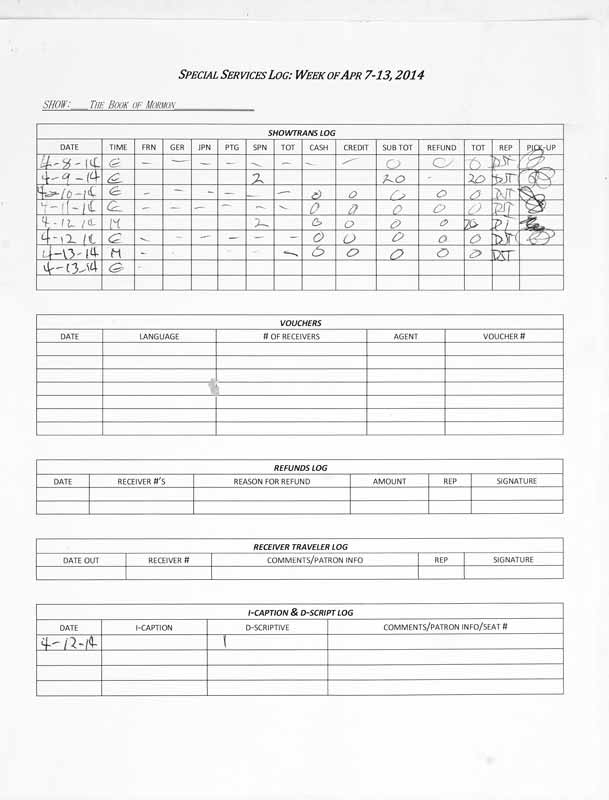 SPECIAL SERVICES LOG: WEEK OF APR 7-13, 2014
SHOW:___THE BOOK OF MORMON_______________
SHOWTRANS LOG
DATE TIME FRN GER JPN PTG SPN TOT CASH CREDIT SUB TOT REFUND TOT REP PICK-UP
4-8-14 E - - - - - - - - 0 0 0 DJT
4-9-14 E 2 20 - 20 DJT
4-10-14 E - - - - - - 0 0 0 0 0 DJT
4-11-14 E - - - - - 0 0 0 0 0 DJT
4-12-14 M 2 0 0 0 0 20 DJT
4-12-14 E - - - - - - 0 0 0 0 0 DJT
4-13-14 M - - - - - 0 0 0 0 0 DJT
4-13-14 E -
VOUCHERS
DATE LANGUAGE # OF RECEIVERS AGENT VOUCHER #
REFUNDS LOG
DATE RECEIVER #'S REASON FOR REFUND AMOUNT REP SIGNATURE
RECEIVER TRAVELER LOG
DATE OUT RECEIVER # COMMENTS/PATRON INFO REP SIGNATURE
I-CAPTION & D-SCRIPT LOG
DATE I-CAPTION D-SCRIPTIVE COMMENTS/PATRON INFO/SEAT #
4-12-14 1